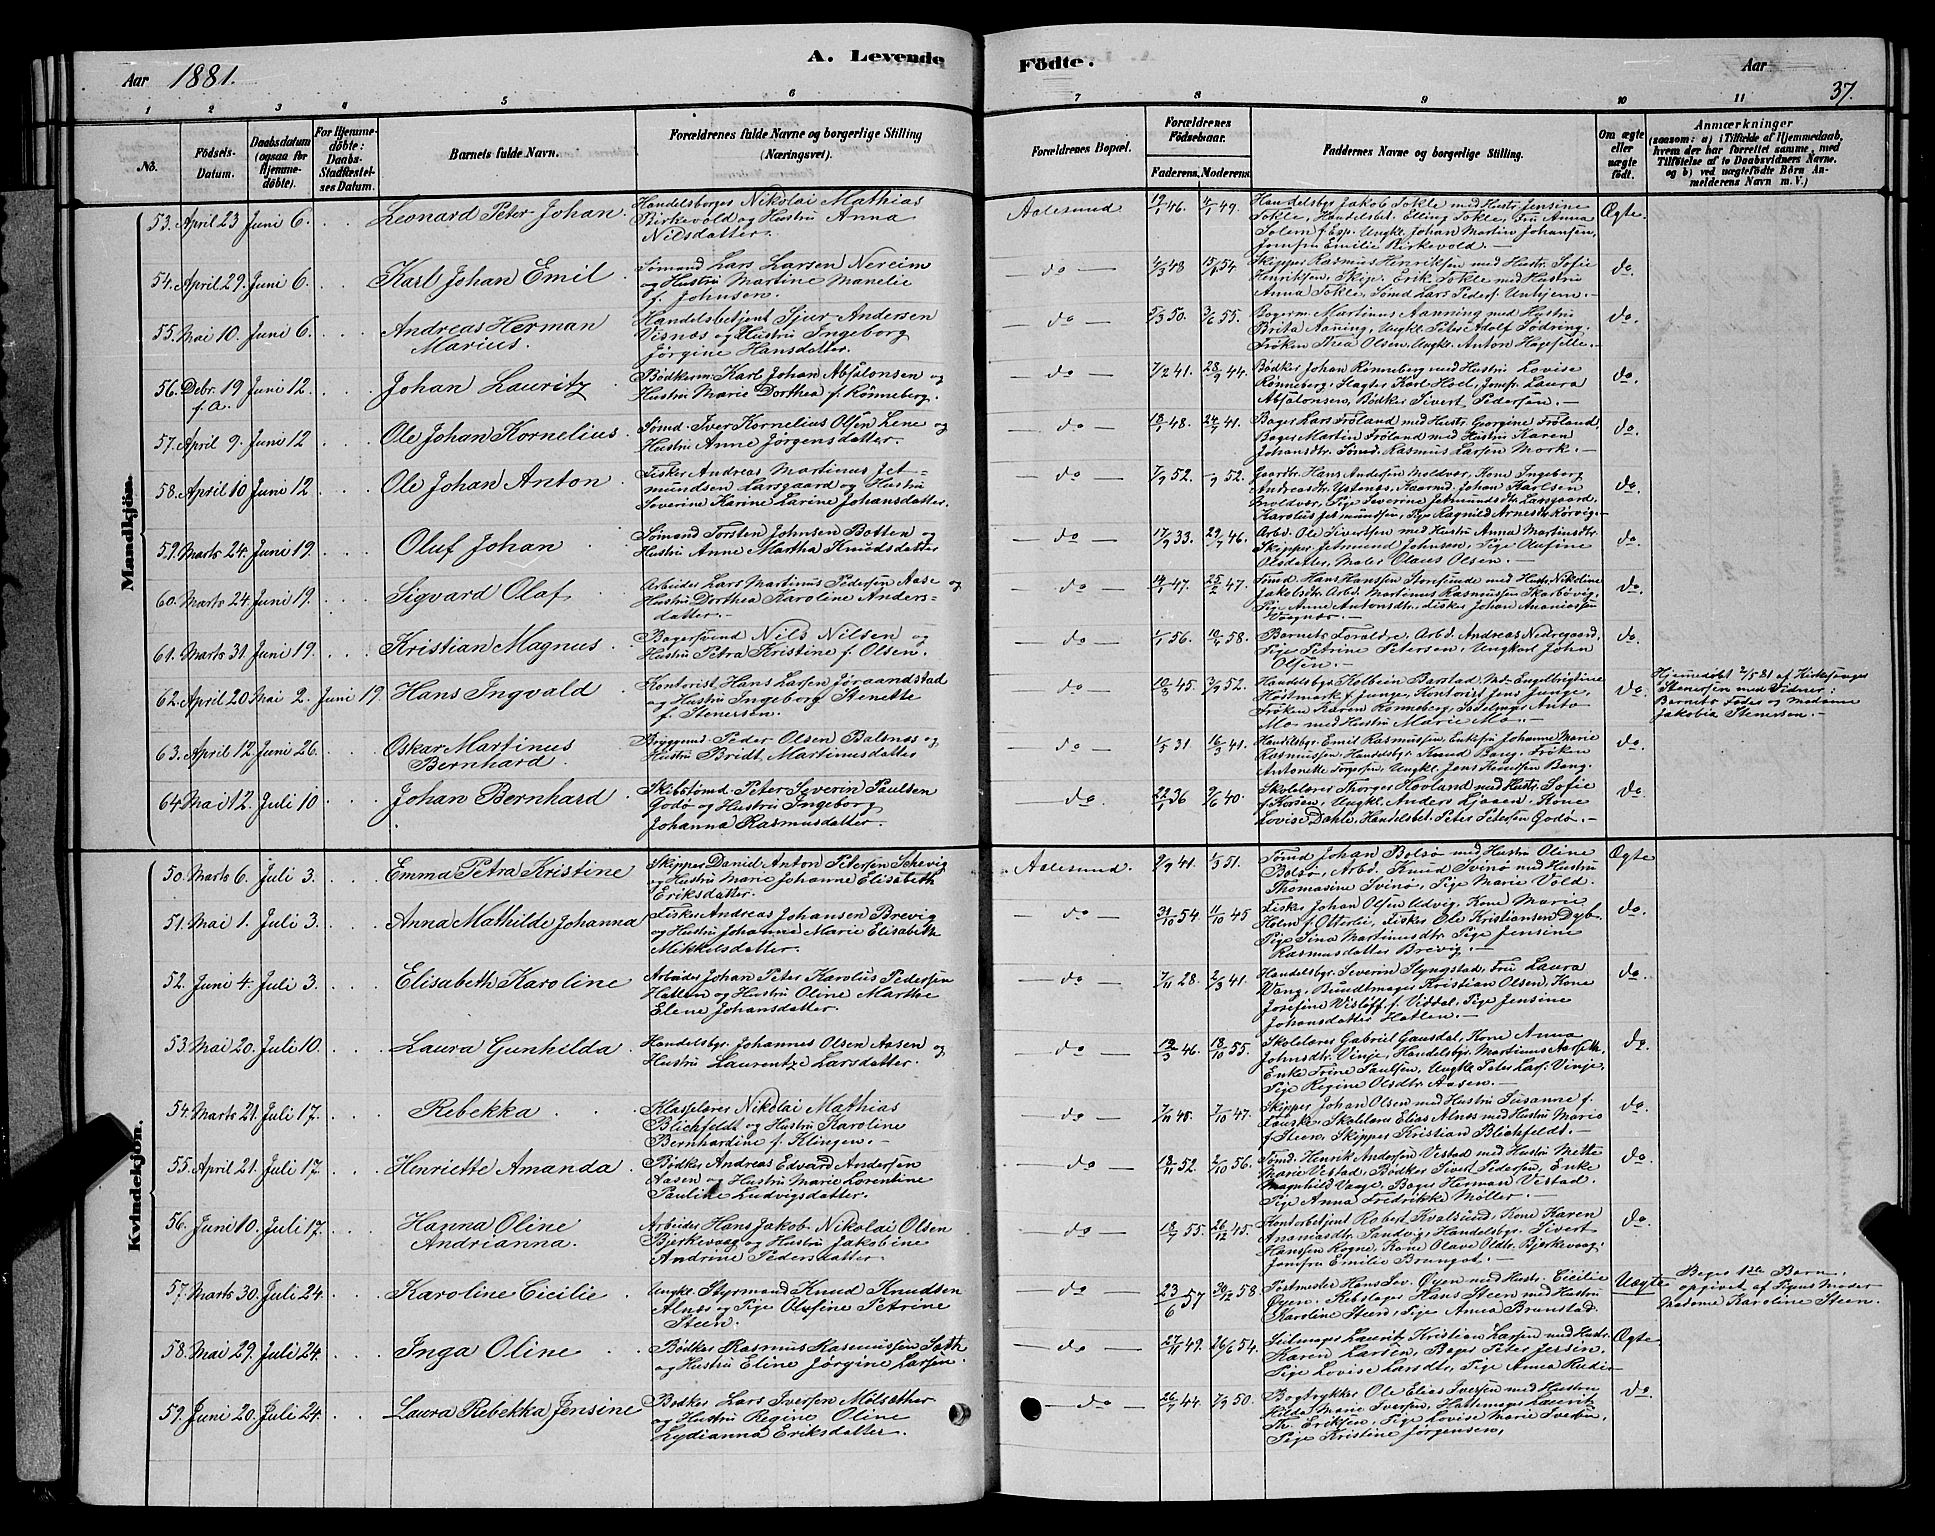 A. Levende Födte.
Aar 1881.
Aar
37.
1 2 3 4 5 6 7 8 9 10 11
No.
Födsels-Datum.
Daabsdatum (ogsaa for Hjemme-döbte).
For Hjemme-döbte: Daabs-Stadfæstel-ses Datum.
Barnets fulde Navn.
Forældrenes fulde Navne og borgerlige Stilling (Næringsvei).
Forældrenes Bopæl.
Forældrenes Födselsaar.
Faderens. Moderens.
Faddernes Navne og borgerlige Stilling.
Om ægte eller uægte födt.
Anmærkninger
(saasom: a) i Tilfælde af Hjemmedaab, hvem der har forrettet samme, med Tilföielse af to Daabsvidners Navne. og b) ved uægtefödte Börn An-melderens Navn m. V.)
Mandkjön.
53. April 23 Juni 6. Leonard Peter Johan. Handelsborger Nikolai Mathias
Birkevold og Hustru Anna
Nilsdatter.
Aalesund 19/1 46. 4/1 49. Handelsbgr Jakob Tokle med Hustr. Jensine
Tokle, Handelsbet. Elling Tokle, Fru Anna
Solem f. Esp. Ungkl. Johan Martin Johansen,
Jomfru Emilie Birkevold. Ægte.
54. April 29. Juni 6. Karl Johan Emil Sömand Lars Larsen Nereim
og Hustru Martine Manelie
f. Johnsen.
do 4/3 48 15/6 54. Skipper Rasmus Henriksen med Hustr. Sofie
Henriksen, Skip. Erik Tokle med Hustru
Anna Tokle, Sömd Lars Peders. Unhjem. do.
55. Mai 10. Juni 6. Andreas Herman
Marius. Handelsbetjent Sjur Andersen
Visnæs og Hustru Ingeborg
Jörgine Hansdatter.
do 2/3 50. 3/6 55. Bogerm. Martinus Aanning med Hustru
Brita Aanning, Ungkl. Peter Adolf Födring.
Fröken Thea Olsen. Ungkl. Anton Hagefille. do.
56. Debr. 19 Juni 12.
f. A. Johan Lauritz Bödkerm. Karl Johan Absalonsen og
Hustru Marie Dorthea f. Rönneberg.
do 7/2 41. 28/9 44. Bödker Johan Rönneberg med Hustru Lovise
Rönneberg, Slagter Karl Hoel, Jomfr. Laura
Absalonsen, Bödker Sivert Pedersen. do.
57. April 9. Juni 12 Ole Johan Kornelius. Sömd. Iver Kornelius Olsen Lene og
Hustru Anne Jörgensdatter.
do 18/1 48. 24/7 41. Bager Lars Fröland med Hustr. Gorgine Fröland,
Bager Martin Fröland med Hustru Karen
Johansdtr. Sömd. Rasmus Larsen Mork. do.
58. April 10 Juni 12 Ole Johan Anton Fisker Andreas Martinus Jet-
mundsen Larsgaard og Hustru
Severine Karine Larine Johansdatter.
do 7/9 52. 9 52. Gaardbr. Hans Andersen Moldvær, Kone Ingeborg
Andreasdtr. Ystenes, Kaarmd. Johan Karlsen
Moldvær, Pige Severine Jetmundsdtr. Larsgaard,
Karolus Jetmundsen, Pige Ragnild Arnesdtr. Körvig. do.
59. Marts 24. Juni 19. Oluf Johan Sömand Torsten Johnsen Botten og
Hustru Anne Martha Knudsdatter
do 17/9 33. 29/7 46. Arbd. Ole Sivertsen med Hustru Anna Martinusdtr.
Skipper Jetmund Johnsen, Pige Olufine
Olsdatter, Maler Olaus Olsen. do.
60. Marts 24. Juni 19. Sigvard Olaf Arbeider Lars Martinus Pedersen Aase og
Hustru Dorthea Karoline Anders-
datter.
do 14/1 47. 25/2 47. Sömd. Hans Hansen Saresunde med Hustr. Nikoline
Jakobsdtr. Arbd. Martinus Rasmussen Skarbövig,
Pige Anne Antonsdtr. Fisker Johan Ananiassen
Vaagnæs. do.
61. Marts 31. Juni 19. Kristian Magnus Bagersvend Nils Nilsen og
Hustru Petra Kristine f. Olsen.
do 1/1 56. 10/4 58. Barnets Forældre, Arbd. Andreas Nedregaard,
Pige Petrine Petersen, Ungkarl Johan
Olsen. do.
62. April 20 Mai 2. Juni 19. Hans Ingvald Kontorist Hans Larsen Jöraandstad
og Hustru Ingeborg Stenette
f. Stenersen.
do 10/3 45. 3/9 52. Handelsbgr Kolbein Barstad, Md. Engelbrigtine
Höstmark f. Junge, Kontorist Jens Junge,
Fröken Karen Rönneberg, Sadelmager Anto
Mo med Hustru Marie Mo. do. Hjemmedöbt 2/5 81 af Kirkesanger
Stenersen med Vidner:
Barnets Fader og Madame
Jakobia Stenersen.
63. April 12. Juni 26. Oskar Martinus
Bernhard. Briggmd. Peder Olsen Balsnæs og
Hustru Bridt Martinusdatter
do 1/5 31. 16/3 41. Handelsbgr. Emil Rasmussen, Enkefru Johanne Marie
Rasmussen, Handelsbgr. Knud Bang, Fröken
Antonette Torgersen, Ungkl. Jens Knudsen Bang. do
64 Mai 12. Juli 10 Johan Bernhard Skibstömd. Peter Severin Paulsen
Godö og Hustru Ingeborg
Johanna Rasmusdatter.
do. 22/1 36 9/6 40. Skolelærer Thorger Hovland med Hustr. Sofie
f. Korsen, Ungkl. Anders Ljosen, Kone
Lovise Dahle, Handelsbet. Peter Petersen Godö. do.
Kvindekjön.
50. Marts 6. Juli 3. Emma Petra Kristine Skipper Daniel Anton Petersen Schevig
og Hustru Marie Johanne Elisabeth
Eriksdatter.
Aalesund. 9/9 41. 1/3 51. Sömd Johan Bolsö med Hustru Oline
Bolsö, Arbd. Knud Svinö med Hustru
Thomasine Svinö, Pige Marie Vold. Ægte
51. Mai 1. Juli 3. Anna Mathilde Johanna Fisker Andreas Johansen Brevig
og Hustru Johanne Marie Elisabeth
Mikkelsdatter.
do 31/10 54. 11/10 45 Fisker Johan Olsen Udvig, Kone Marie
Holm f. Otterlei, Fisker Ole Kristiansen Dyb
Pige Sina Martinusdtr. Pige Jensine
Rasmusdatter Brevig. do.
52. Juni 4. Juli 3. Elisabeth Karoline Arbeider Johan Peter Karolus Pedersen
Hatlen og Hustru Oline Marthe
Elene Johansdatter.
do 7/11 28. 2/3 41. Handelsbgr. Severin Slyngstad, Fru Laura
Wang, Bundtmager Kristian Olsen, Kone
Josefine Wislöff f. Viddal, Pige Jensine
Johansdatter Hatlen. do
53. Mai 20. Juli 10. Laura Gunhilda Handelsbgr. Johannes Olsen Aasen og
Hustru Laurentze Larsdatter.
do 12/3 46. 18/10 55. Skolelærer Gabriel Gausdal, Kone Anna
Johnsdtr. Vinje, Handelsbgr. Martinus Aarseth,
Enke Trine Paulsen, Ungkl. Peter Lars. Vinje,
Pige Regine Olsdtr. Aasen. do.
54. Marts 21. Juli 17. Rebekka Klasselærer Nikolai Mathias
Blichfeldt og Hustru Karoline
Bernhardine f. Klingen.
do 7/11 45. 7/10 47. Skipper Johan Olsen med Hustru Susanne f.
Fauske, Skolelærer Elias Alnæs med Hustru Marie
f. Steen, Skipper Kristian Blichfeldt. do.
55. April 21. Juli 17. Henriette Amanda Bödker Andreas Edvard Andersen
Aasen og Hustru Marie Lorentine
Pauline Ludvigsdatter.
do 18/11 52. 2/10 56. Sömd. Henrik Andersen Vestad med Hustru Mette
Marie Vestad, Bödker Sivert Pedersen, Enke
Magnhild Vaage, Bager Herman Vestad,
Pige Anna Fredrikke Möller. do.
56. Juni 10. Juli 17. Hanna Oline
Andrianna. Arbeider Hans Jakob Nikolai Olsen
Bjerkevaag og Hustru Jakobine
Andrine Pedersdatter
do 18/7 55. 26/12 45. Kontorbetjent Robert Kvalsund, Kone Karen
Ananiasdtr. Sandvig, Handelsbgr. Sivert
Hansen Rogne, Kone Olave Oldtr. Bjerkevaag,
Jomfru Emilie Brungot. do.
57. Marts 30. Juli 24. Karoline Cicilie Ungkl. Styrmand Knud Knudsen
Alnes og Pige Olufine Petrine
Steen.
do 23/6 57 30/12 58. Postmester Hans Sev. Öyen med Hustr. Cecilie
Öyen, Rebslager Hans Steen med Hustru
Karoline Steen, Pige Anna Brunstad. Uægte Beges 1ste Barn,
opgivet af Pigens Moder
Madame Karoline Steen.
58. Mai 29. Juli 24. Inga Oline Bödker Rasmus Rasmussen Sæth
og Hustru Eline Jörgine Larsen.
do 27/11 49. 26/6 54. Seilmager Lauritz Kristian Larsen med Hustr.
Karen Larsen, Bager Peter Jensen,
Pige Lovise Larsdtr, Pige Anna Rader Ægte.
59. Juni 20. Juli 24. Laura Rebekka Jensine Bödker Lars Iversen Molsæther
og Hustru Regine Oline
Lydianna Eriksdatter.
do 26/1 44. 7/9 50. Bogtrykker Ole Elias Iversen med Hustru
Hilda Marie Iversen, Hattemager Lauritz
Th. Eriksen, Pige Lovise Marie Iversen,
Pige Kristine Jörgensen, do.